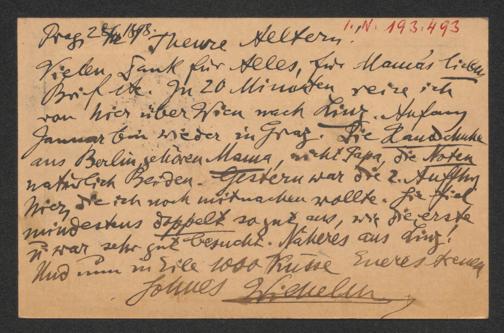 I. N. 193.493
Prag, 1898. Theure Aeltern!
Vielen Dank für Alles, für Mama's lieben
Brief etc. In 20 Minuten reise ich
von hier über Wien nach Linz. Anfang
Januar bin wieder in Graz. Die Handschuhe
aus Berlin gehören Mama, nicht Papa, die Noten
natürlich Beiden. Gestern war die 2. Aufführ
hier, die ich noch mitmachen wollte. Sie fiel
mindestens doppelt so gut aus, wie die erste
u. war sehr gut besucht. Näheres aus Linz!
Und nun in Eile 1000 Küsse Eueres treuen
Sohnes Wilhelm